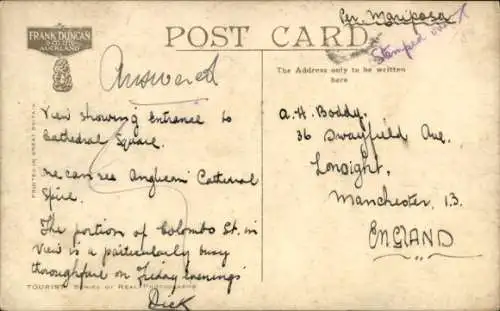 Per Mariposa
FRANK DUNCAN
& CO. LTD.
AUCKLAND
POST CARD
Stamped
Answered
The Address only to be written
here
View showing Entrance to
Cathedral Square.
One can see Anglican Cathedral
Spire.
The portion of Colombo St. in
view is a particularly busy
thoroughfare on Friday evenings
Dick
A. H. Boddy.
36 Swayfield Ave.
Longsight,
Manchester, 13.
ENGLAND
PRINTED IN GREAT BRITAIN
TOURIST SERIES OF REAL PHOTOGRAPHS